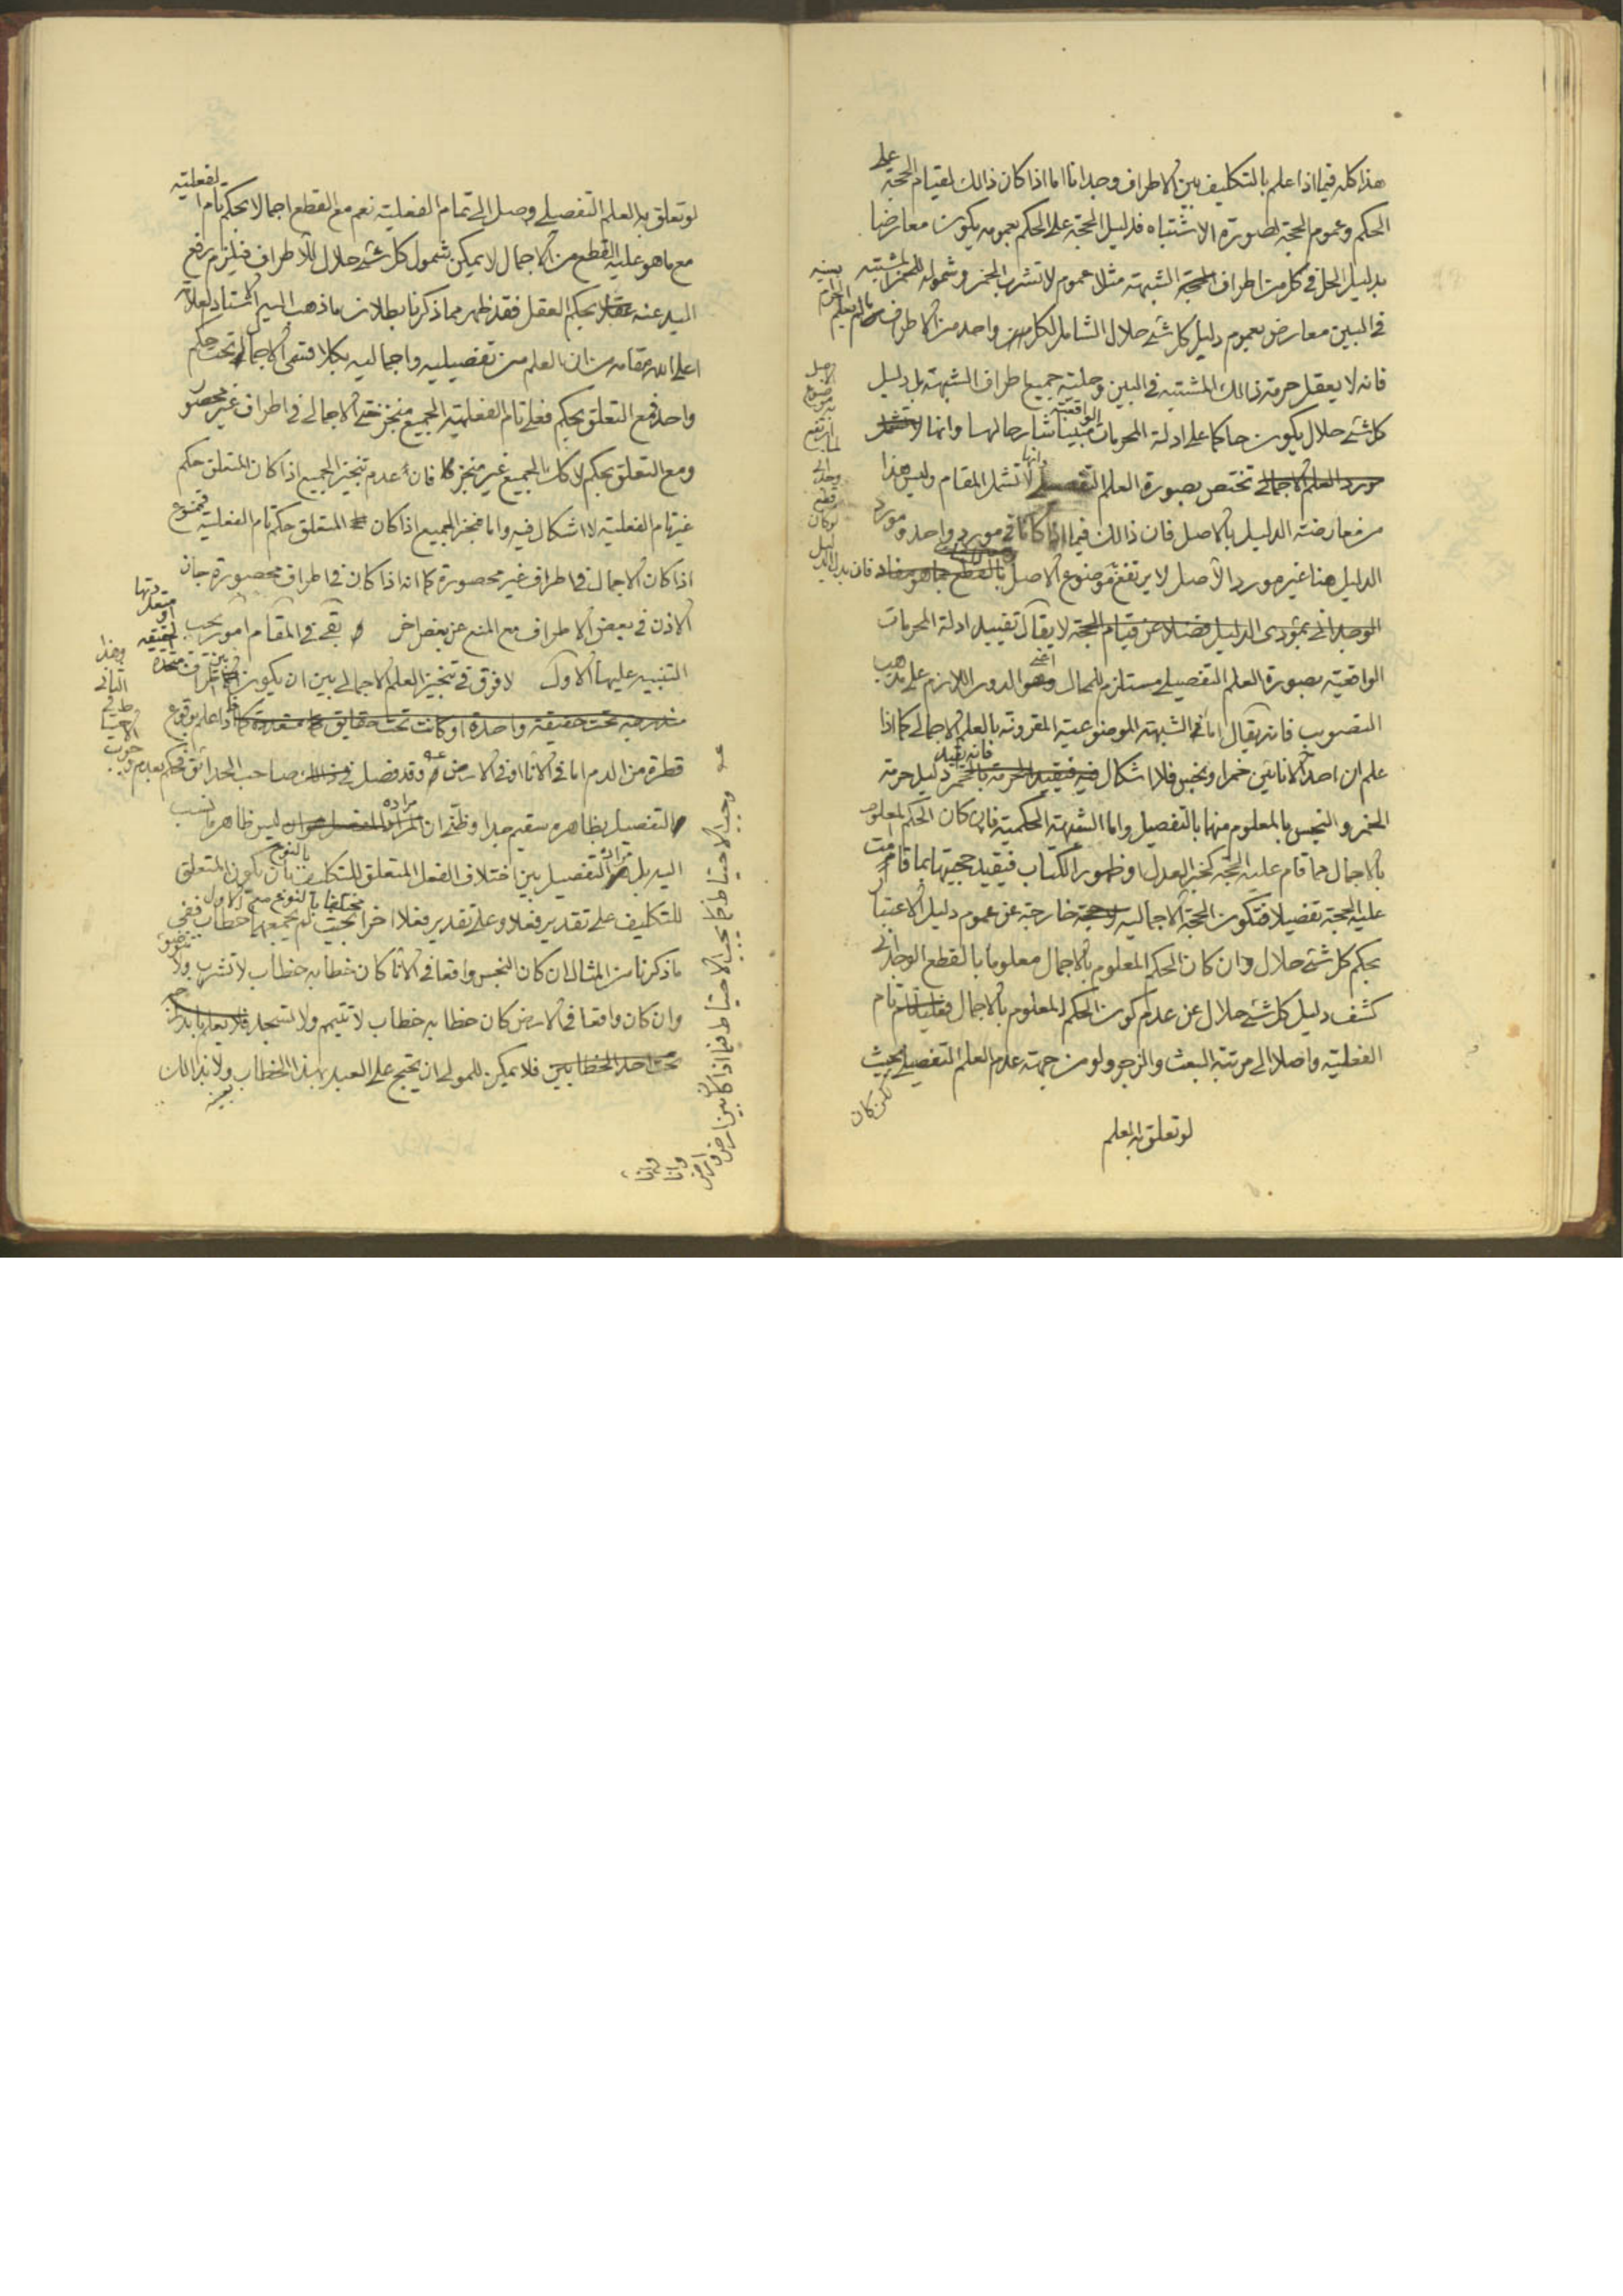 هذا كله فيما اذا علم بالتكليف بين الاطراف وجدانا اما اذا كان ذالك لقيام الحجة على
الحكم وعموم الحجة لصورة الاشتباه فدليل الحجة على الحكم بعمومه يكون معارضا
بدليل الحل في كل من اطراف الشبهة مثلا عموم لا تشرب الخمر وشموله للخمر المشتبه
في البين معارض بعموم دليل كل شئ حلال الشامل لكل واحد من الاطراف
فانه لا يعقل حرمة ذالك المشتبه في البين وحلية جميع اطراف الشبهة بل دليل
كل شئ حلال يكون حاكما على ادلة المحرمات الواقعية مبينا شارحا لها وانها
مورد العلم الاجمالي تختص بصورة العلم التفصيلي وانها لا تشمل المقام وليس هذا
من معارضة الدليل بالاصل فان ذالك فيما اذا كانا في مورد واحد ومورد
الدليل هنا غير مورد الاصل لا يرتفع موضوع الاصل بالقطع بما هو مفاد فان بدليل
الوجداني بمؤدى الدليل فضلا عن قيام الحجة لا يقال تقييد ادلة المحرمات
الواقعية بصورة العلم التفصيلي مستلزم للمحال اعني الدور اللازم على مذهب
التصويب فانه يقال اما في الشبهة الموضوعية المقرونة بالعلم الاجمالي كما اذا
علم ان احد الانائين خمر او نجس فلا اشكال فيه فيقيد الحرمة بالخمر فانه يقيد دليل حرمة
الخمر والنجس بالمعلوم منهما بالتفصيل واما الشبهة الحكمية فان كان الحكم المعلوم
بالاجمال مما قام عليه الحجة كخبر العدل او ظهور الكتاب فيقيد حجيتها بما قامت
عليه الحجة تفصيلا فتكون الحجة الاجمالية خارجة عن عموم دليل الاعتبار
بحكم كل شئ حلال وان كان الحكم المعلوم بالاجمال معلوما بالقطع الوجداني
كشف دليل كل شئ حلال عن عدم كون الحكم المعلوم بالاجمال فعليا تام
الفعلية واصلا الى مرتبة البعث والزجر ولو من جهة عدم العلم التفصيلي بحيث
لكن كان
لو تعلق به العلم
لو تعلق به العلم التفصيلي وصل الى تمام الفعلية نعم مع القطع اجمالا بحكم تام الفعلية
مع ما هو عليه القطع من الاجمال لا يمكن شمول كل شئ حلال للاطراف فيلزم رفع
اليد عنه بحكم العقل فقد ظهر مما ذكرنا بطلان ما ذهب اليه الاستاد العلامة
اعلى الله مقامه من ان العلم من تفصيليه واجماليه بكلا قسمي الاجمالي تحت حكم
واحد فمع التعلق بحكم فعلي تام الفعلية الجميع منجز حتى الاجمالي في اطراف غير محصور
ومع التعلق بحكم لا كك الجميع غير منجز فان عدم تنجيز الجميع اذا كان المتعلق حكم
غير تام الفعلية لا اشكال فيه واما منجز الجميع اذا كان المتعلق حكم تام الفعلية فممنوع
اذا كان الاجمال في اطراف غير محصورة كما انه اذا كان في اطراف محصورة جاز
الاذن في بعض الاطراف مع المنع عن بعض اخر بقي في المقام امور يجب
التنبيه عليها الاول لا فرق في تنجيز العلم الاجمالي بين ان يكون الاطراف متحدة الحقيقة او متعددتها
مندرجة تحت حقيقة واحدة او كانت تحت حقايق متعددة كما اذا علم بوقوع
قطرة من الدم اما في الانا او في الارض وقد فصل في ذالك صاحب الحدائق فحكم بعدم وجوب الاحتياط في الثاني وهذا
التفصيل بظاهره سقيم جدا وظني ان مراده المفصل ليس ظاهر ما نسب
اليه بل التفصيل بين اختلاف الفعل المتعلق للتكليف بالنوع بان يكون المتعلق
للتكليف على تقدير فعلا وعلى تقدير فعلا اخر مختلفا بالنوع مع الاول بحيث لم يجمعهما خطاب ففي
ما ذكرنا من المثال ان كان النجس واقعا في الانا كان خطابه خطاب لا تشرب ولا تتوض
وان كان واقعا في الارض كان خطابه خطاب لا تتيمم ولا تسجد
تحت احد الخطابين فلا يمكن للمولى ان يحتج على العبد بهذا الخطاب ولا بذالك
بعينه
وجب الاحتياط كما يجب الاحتياط فيما اذا كان بين ارض وارض